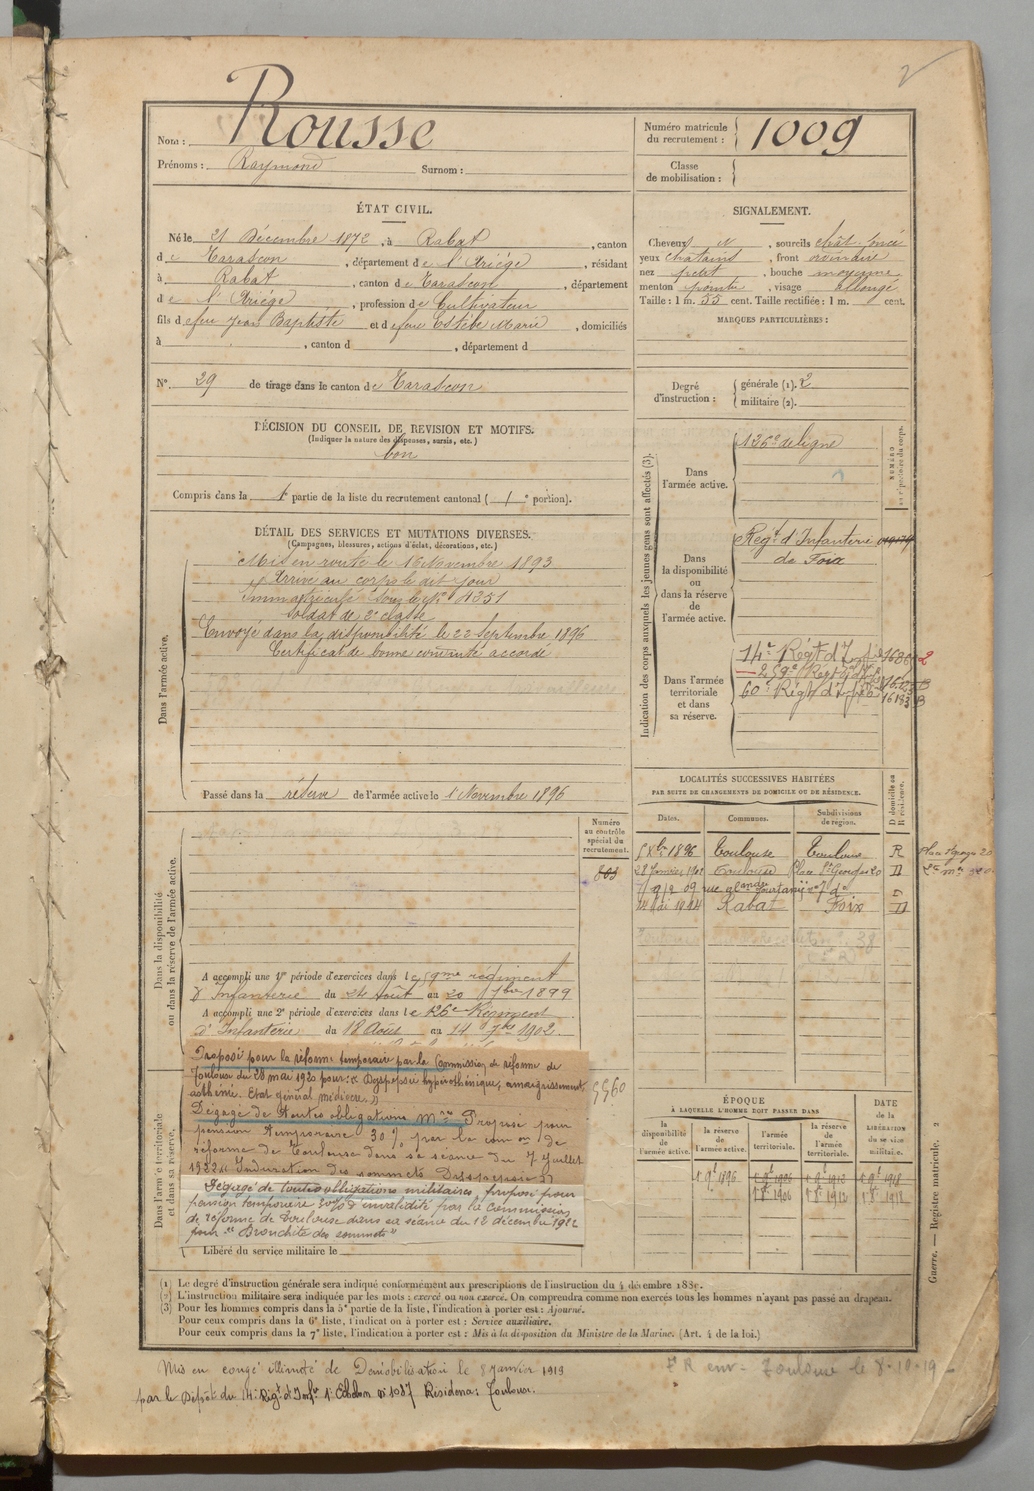 2
Nom : Rousse
Prénoms : Raymond Surnom :
Numéro matricule
du recrutement : 1009
Classe
de mobilisation :
ÉTAT CIVIL.
Né le 21 Décembre 1872, à Rabat, canton
de Tarascon, département de l'Ariège, résidant
à Rabat, canton de Tarascon, département
de l'Ariège, profession de Cultivateur
fils de feu Jean Baptiste et de feu Estèbe Marie, domiciliés
à , canton d , département d
SIGNALEMENT.
Cheveux et, sourcils chât. foncé
yeux chatains, front ordinaire
nez petit, bouche moyenne
menton pointu, visage allongé
Taille : 1 m. 55 cent. Taille rectifiée : 1 m. cent.
MARQUES PARTICULIÈRES :
N° 29 de tirage dans le canton de Tarascon
Degré
d'instruction :
générale (1). 2
militaire (2).
DÉCISION DU CONSEIL DE REVISION ET MOTIFS.
(Indiquer la nature des dispenses, sursis, etc.)
bon
Compris dans la 1e partie de la liste du recrutement cantonal ( 1e portion).
DÉTAIL DES SERVICES ET MUTATIONS DIVERSES.
(Campagnes, blessures, actions d'éclat, décorations, etc.)
Dans l'armée active.
Mis en route le 16 Novembre 1893
Arrivé au corps le dit jour
Immatriculé sous le N° 4351
soldat de 2e classe
Envoyé dans la disponibilité le 22 Septembre 1896
Certificat de bonne conduite accordé
Passé dans la réserve de l'armée active le 1 Novembre 1896
Indication des corps auxquels les jeunes gens sont affectés (3).
NUMÉRO
au répertoire du corps.
Dans
l'armée active.
126e de ligne
Dans
la disponibilité
ou
dans la réserve
de
l'armée active.
Régt d'Infanterie
de Foix
Dans l'armée
territoriale
et dans
sa réserve.
14e Régt d'Inf
259e Régt
60e Régt d'Inf
LOCALITÉS SUCCESSIVES HABITÉES
PAR SUITE DE CHANGEMENTS DE DOMICILE OU DE RÉSIDENCE.
D domicile ou
R résidence.
Dates. Communes. Subdivisions
de région.
5 Xbre 1896 Toulouse Toulouse R
28 Janvier 1902 Toulouse Place St Georges 20 D
14 Mai 1914 Rabat Foix D
Dans la disponibilité
ou dans la réserve de l'armée active.
Numéro
au contrôle
spécial du
recrutement.
803
A accompli une 1re période d'exercices dans le 59me régiment
d'Infanterie du 24 Août au 20 7bre 1899
A accompli une 2e période d'exercices dans le 126e Régiment
d'Infanterie du 18 Août au 14 7bre 1902.
Dans l'armée territoriale
et dans sa réserve.
Proposé pour la réforme temporaire par la Commission de réforme de
Toulouse du 28 mai 1920 pour : « Dyspepsie hyposthénique, amaigrissement,
asthénie. Etat général médiocre. »
Dégagé de toutes obligations Mres Proposé pour
pension temporaire 30 % par la com on de
réforme de Toulouse dans sa séance du 7 Juillet
1922 « Induration des sommets Dyspepsie »
Dégagé de toutes obligations militaires, proposé pour
pension temporaire 30 % d'invalidité par la Commission
de réforme de Toulouse dans sa séance du 12 décembre 1922
pour « Bronchite des sommets »
Libéré du service militaire le
ÉPOQUE
À LAQUELLE L'HOMME DOIT PASSER DANS
DATE
de la
LIBÉRATION
du service
militaire.
la
disponibilité
de
l'armée active.
la réserve
de
l'armée active.
l'armée
territoriale.
la réserve
de
l'armée
territoriale.
Guerre. — Registre matricule, 2
(1) Le degré d'instruction générale sera indiqué conformément aux prescriptions de l'instruction du 4 décembre 1889.
(2) L'instruction militaire sera indiquée par les mots : exercé ou non exercé. On comprendra comme non exercés tous les hommes n'ayant pas passé au drapeau.
(3) Pour les hommes compris dans la 5e partie de la liste, l'indication à porter est : Ajourné.
Pour ceux compris dans la 6e liste, l'indication à porter est : Service auxiliaire.
Pour ceux compris dans la 7e liste, l'indication à porter est : Mis à la disposition du Ministre de la Marine. (Art. 4 de la loi.)
Mis en congé illimité de Démobilisation le 8 Janvier 1919
par le Dépôt du 14e Régt d'Infie 1er Echelon n° 1087 Résidence : Toulouse.
Toulouse le 8-10-19